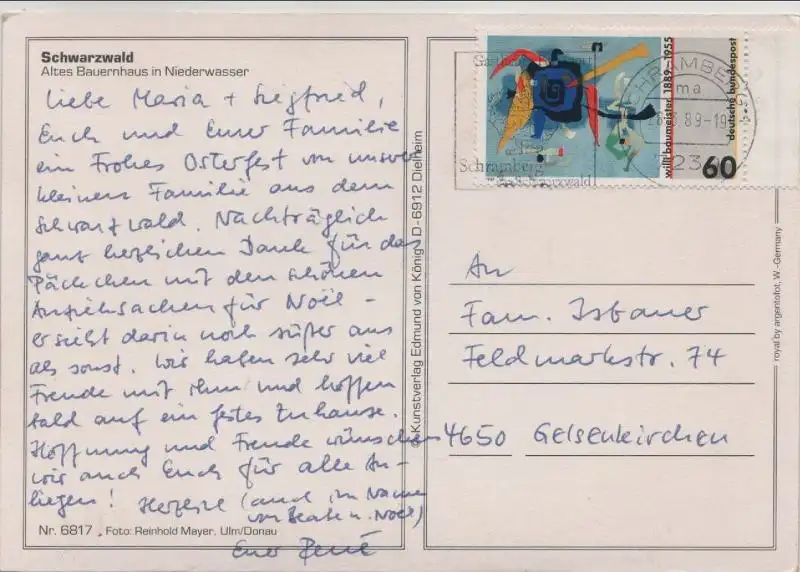 Schwarzwald
Altes Bauernhaus in Niederwasser
Liebe Maria + Siegfried,
Euch und Eurer Familie
ein Frohes Osterfest von unserer
kleinen Familie aus dem
Schwarzwald. Nachträglich
ganz herzlichen Dank für das
Päckchen mit den schönen
Anziehsachen für Noël –
er sieht darin noch süßer aus
als sonst. Wir haben sehr viel
Freude mit ihm und hoffen
bald auf ein festes Zuhause.
Hoffnung und Freude wünschen
wir auch Euch für alle An-
liegen! Herzlich (auch im Namen
von Beate u. Noël)
Euer René
Nr. 6817 Foto: Reinhold Mayer, Ulm/Donau
© Kunstverlag Edmund von König D-6912 Dielheim
willi baumeister 1889-1955
deutsche bundespost
60
SCHRAMBERG
ma
89-19
723
Schramberg
Schwarzwald
An
Fam. Isbaner
Feldmarkstr. 74
4650 Gelsenkirchen
royal by argentofot, W.-Germany